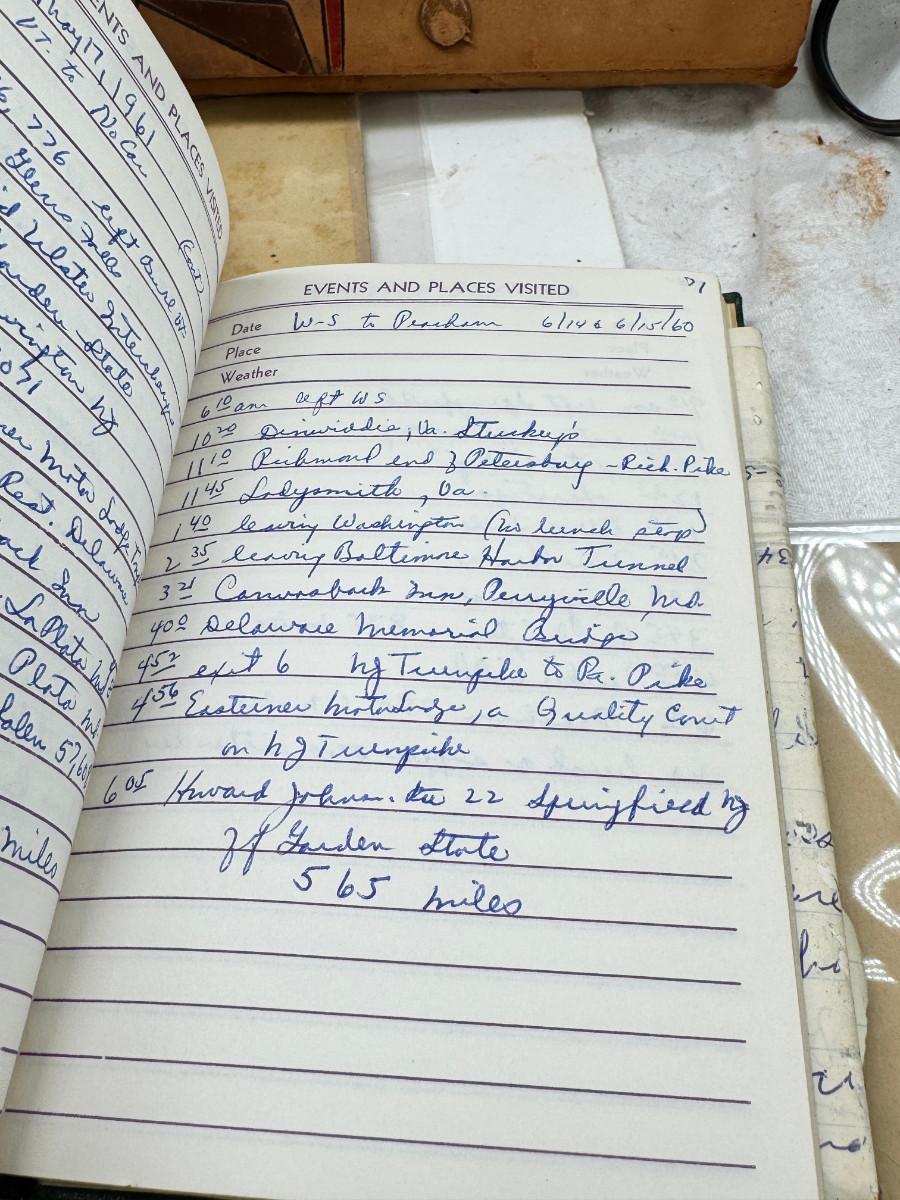 ENTS AND PLACES VISITED
May 17, 1961
VT. to No Car
776 left Barre Vt.
Glens Falls (Coat)
Ulster Interchange
Garden State
Irvington NJ
071
Motor Lodge
Rest. Delaware
Inn
La Plata Md
Plata Md
Salem 57,60
miles
EVENTS AND PLACES VISITED
Date W-S to Peacham 6/14 & 6/15/60
Place
Weather
6 10 am left WS
10 20 Dinwiddie, Va. Stuckey's
11 10 Richmond end of Petersburg - Rich. Pike
11 45 Ladysmith, Va.
1 40 leaving Washington (no lunch stop)
2 35 leaving Baltimore Harbor Tunnel
Canvasback Inn, Perryville, Md.
4 00 Delaware Memorial Bridge
4 52 exit 6 NJ Turnpike to Pa. Pike
4 56 Easterner MotorLodge, a Quality Court
on NJ Turnpike
6 05 Howard Johnson. Rte 22 Springfield NJ
off Garden State
565 miles
34